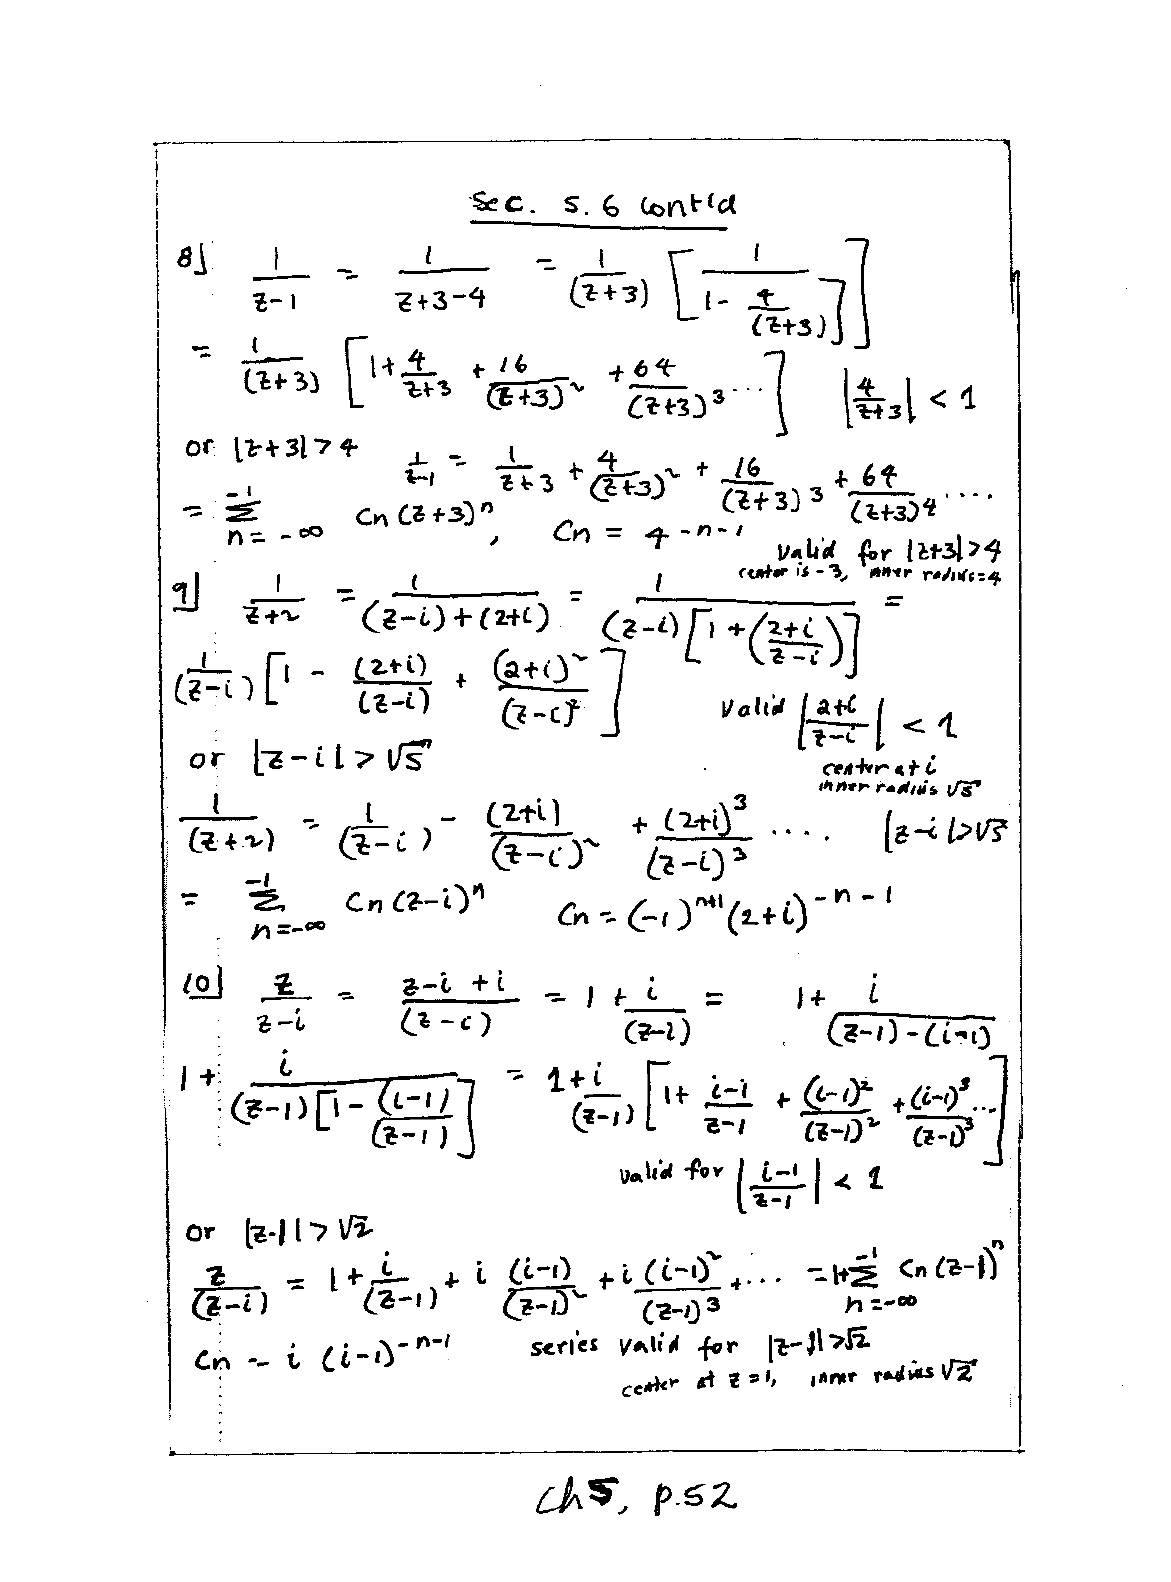 Sec. 5.6 cont'd
8] 1/(z-1) = 1/(z+3-4) = 1/(z+3) [1/(1- 4/(z+3))]
= 1/(z+3) [1+ 4/(z+3) + 16/(z+3)^2 + 64/(z+3)^3 ...] |4/(z+3)| < 1
or |z+3| > 4 1/(z-1) = 1/(z+3) + 4/(z+3)^2 + 16/(z+3)^3 + 64/(z+3)^4 ....
= Σ_{n=-∞}^{-1} Cn (z+3)^n, Cn = 4^{-n-1}
valid for |z+3|>4
center is -3, inner radius=4
9] 1/(z+2) = 1/((z-i)+(2+i)) = 1/((z-i)[1+((2+i)/(z-i))]) =
1/(z-i) [1 - (2+i)/(z-i) + (2+i)^2/(z-i)^2] valid |(2+i)/(z-i)| < 1
or |z-i| > √5
center at i
inner radius √5
1/(z+2) = 1/(z-i) - (2+i)/(z-i)^2 + (2+i)^3/(z-i)^3 .... |z-i|>√5
= Σ_{n=-∞}^{-1} Cn (z-i)^n Cn = (-1)^{n+1} (2+i)^{-n-1}
10] z/(z-i) = (z-i+i)/(z-i) = 1 + i/(z-i) = 1+ i/((z-1)-(i-1))
1+ i/((z-1)[1- (i-1)/(z-1)]) = 1+ i/(z-1) [1+ (i-1)/(z-1) + (i-1)^2/(z-1)^2 + (i-1)^3/(z-1)^3 ...]
valid for |(i-1)/(z-1)| < 1
or |z-1| > √2
z/(z-i) = 1+ i/(z-1) + i (i-1)/(z-1)^2 + i (i-1)^2/(z-1)^3 + ... = 1+ Σ_{n=-∞}^{-1} Cn (z-1)^n
Cn = i (i-1)^{-n-1} series valid for |z-1|>√2
center at z=1, inner radius √2
Ch5, p.52